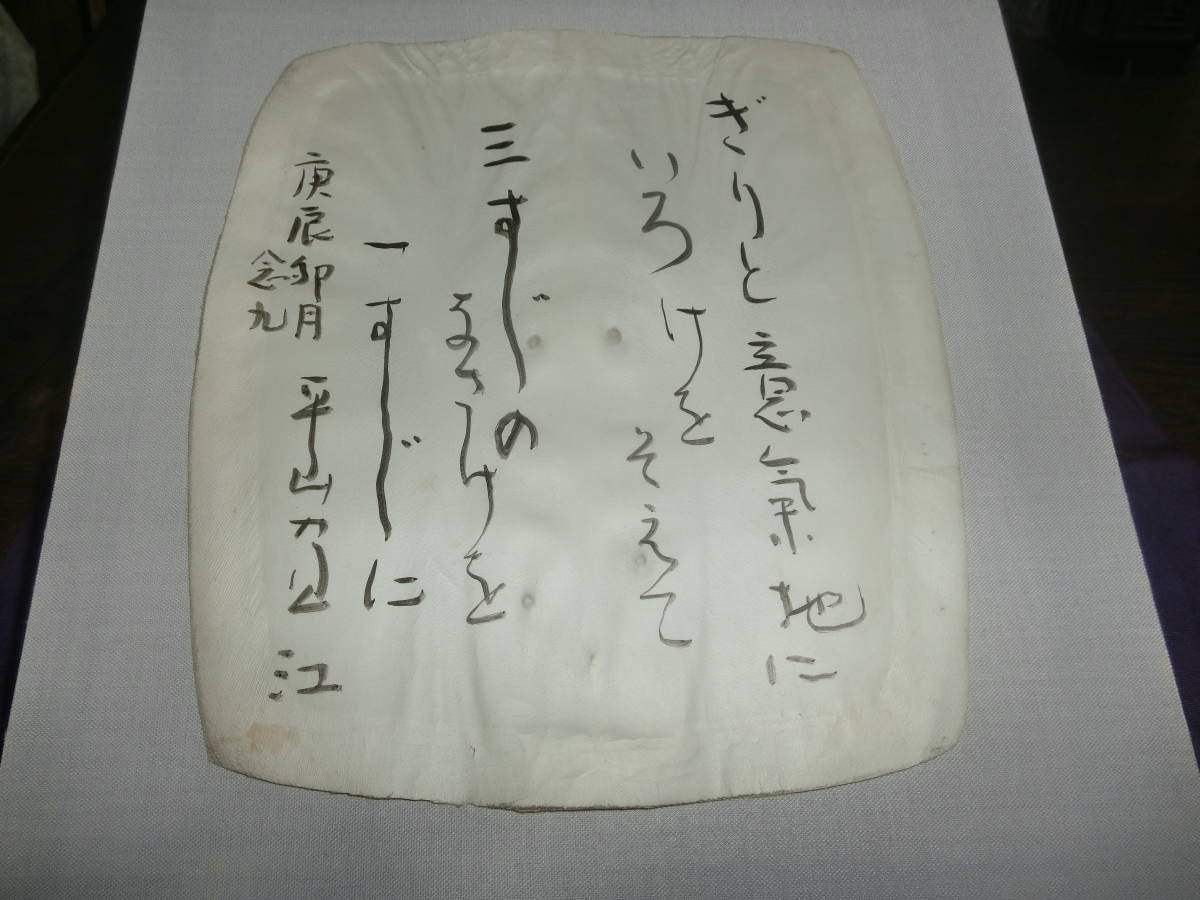 ぎりと意氣地に
いろけを
そえて
三すじの
なさけを
一すじに
庚辰卯月
念九
平山力江